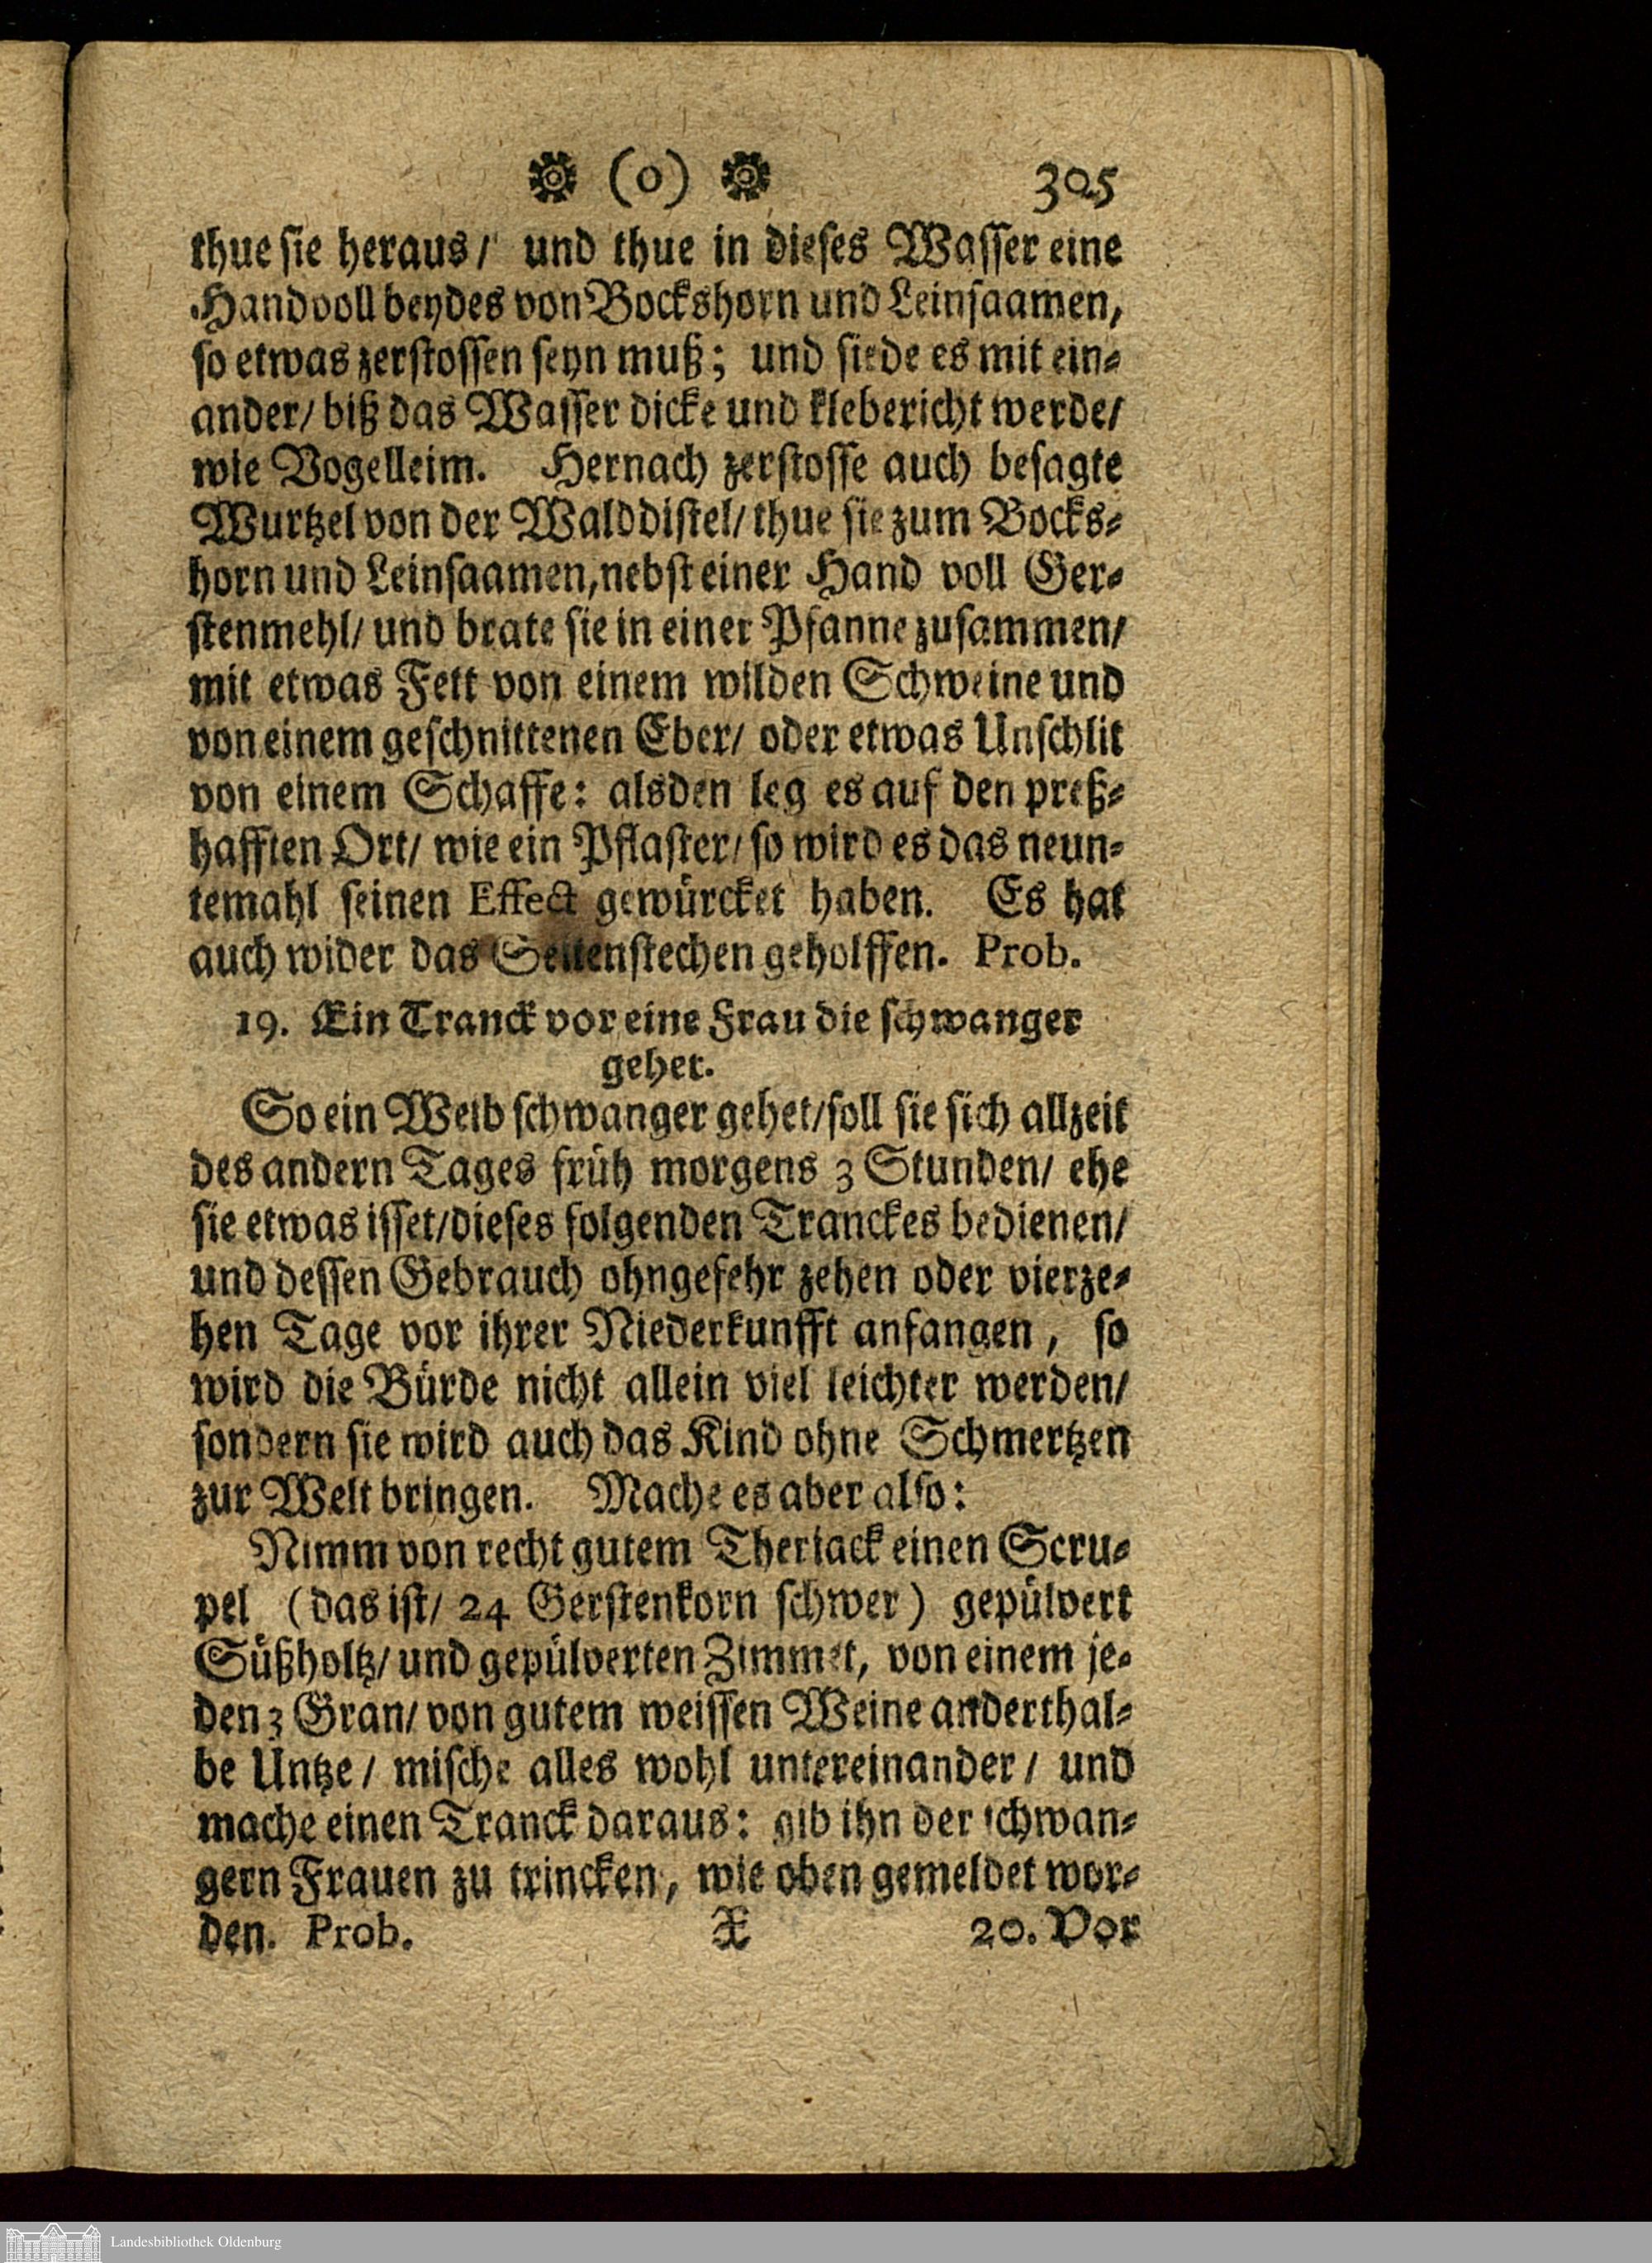 (o) 305
thue sie heraus/ und thue in dieses Wasser eine
Handvoll beydes von Bockshorn und Leinsaamen,
so etwas zerstossen seyn muß; und siede es mit ein-
ander/ biß das Wasser dicke und klebericht werde/
wie Vogelleim. Hernach zerstosse auch besagte
Wurtzel von der Walddistel/ thue sie zum Bocks-
horn und Leinsaamen, nebst einer Hand voll Ger-
stenmehl/ und brate sie in einer Pfanne zusammen/
mit etwas Fett von einem wilden Schweine und
von einem geschnittenen Eber/ oder etwas Unschlit
von einem Schaffe: alsden leg es auf den preß-
hafften Ort/ wie ein Pflaster/ so wird es das neun-
temahl seinen Effect gewürcket haben. Es hat
auch wider das Seitenstechen geholffen. Prob.
19. Ein Tranck vor eine Frau die schwanger
gehet.
So ein Weib schwanger gehet/ soll sie sich allzeit
des andern Tages früh morgens 3 Stunden/ ehe
sie etwas isset/ dieses folgenden Tranckes bedienen/
und dessen Gebrauch ohngefehr zehen oder vierze-
hen Tage vor ihrer Niederkunfft anfangen, so
wird die Bürde nicht allein viel leichter werden/
sondern sie wird auch das Kind ohne Schmertzen
zur Welt bringen. Mache es aber also:
Nimm von recht gutem Theriack einen Scru-
pel (das ist/ 24 Gerstenkorn schwer) gepülvert
Süßholtz/ und gepülverten Zimmet, von einem je-
den 3 Gran/ von gutem weissen Weine anderthal-
be Untze/ mische alles wohl untereinander/ und
mache einen Tranck daraus: gib ihn der schwan-
gern Frauen zu trincken, wie oben gemeldet wor-
den. Prob. X 20. Vor
Landesbibliothek Oldenburg